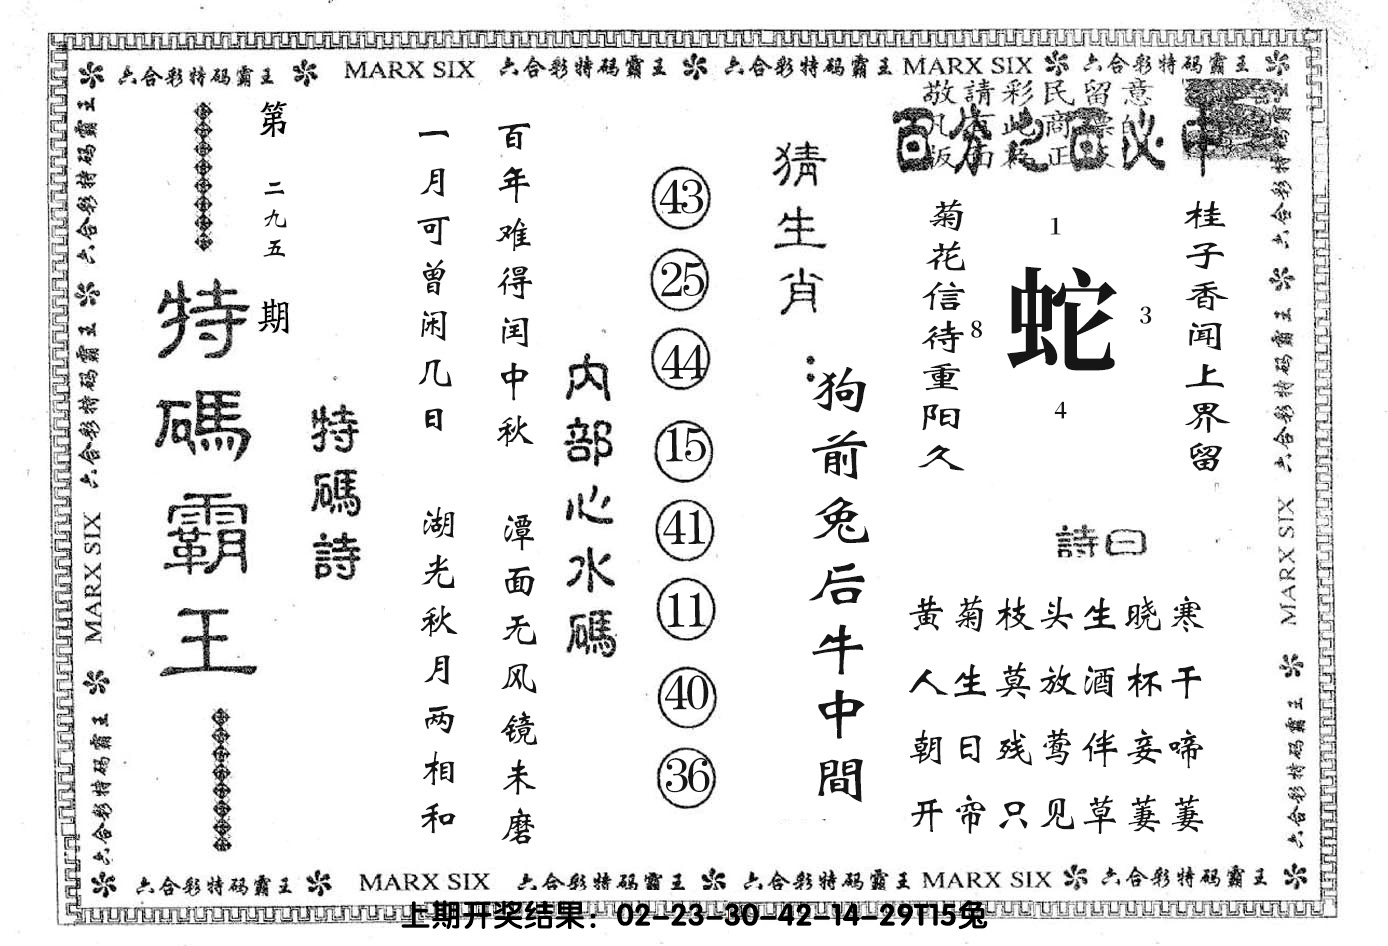 六合彩特码霸王 MARX SIX 六合彩特码霸王 六合彩特码霸王 MARX SIX 六合彩特码霸王
敬請彩民留意
百分之百必中
桂子香闻上界留
菊花信待重阳久
1
蛇
8
3
4
詩曰
黄菊枝头生晓寒
人生莫放酒杯干
朝日残莺伴妾啼
开帘只见草萋萋
猜生肖：
狗前兔后牛中間
43
25
44
15
41
11
40
36
内部心水碼
百年难得闰中秋
潭面无风镜未磨
一月可曾闲几日
湖光秋月两相和
特碼詩
第二九五期
特碼霸王
六合彩特码霸王 六合彩特码霸王 MARX SIX 六合彩特码霸王
六合彩特码霸王 六合彩特码霸王 MARX SIX 六合彩特码霸王
六合彩特码霸王 MARX SIX 六合彩特码霸王 六合彩特码霸王 MARX SIX 六合彩特码霸王
上期开奖结果：02-23-30-42-14-29T15兔